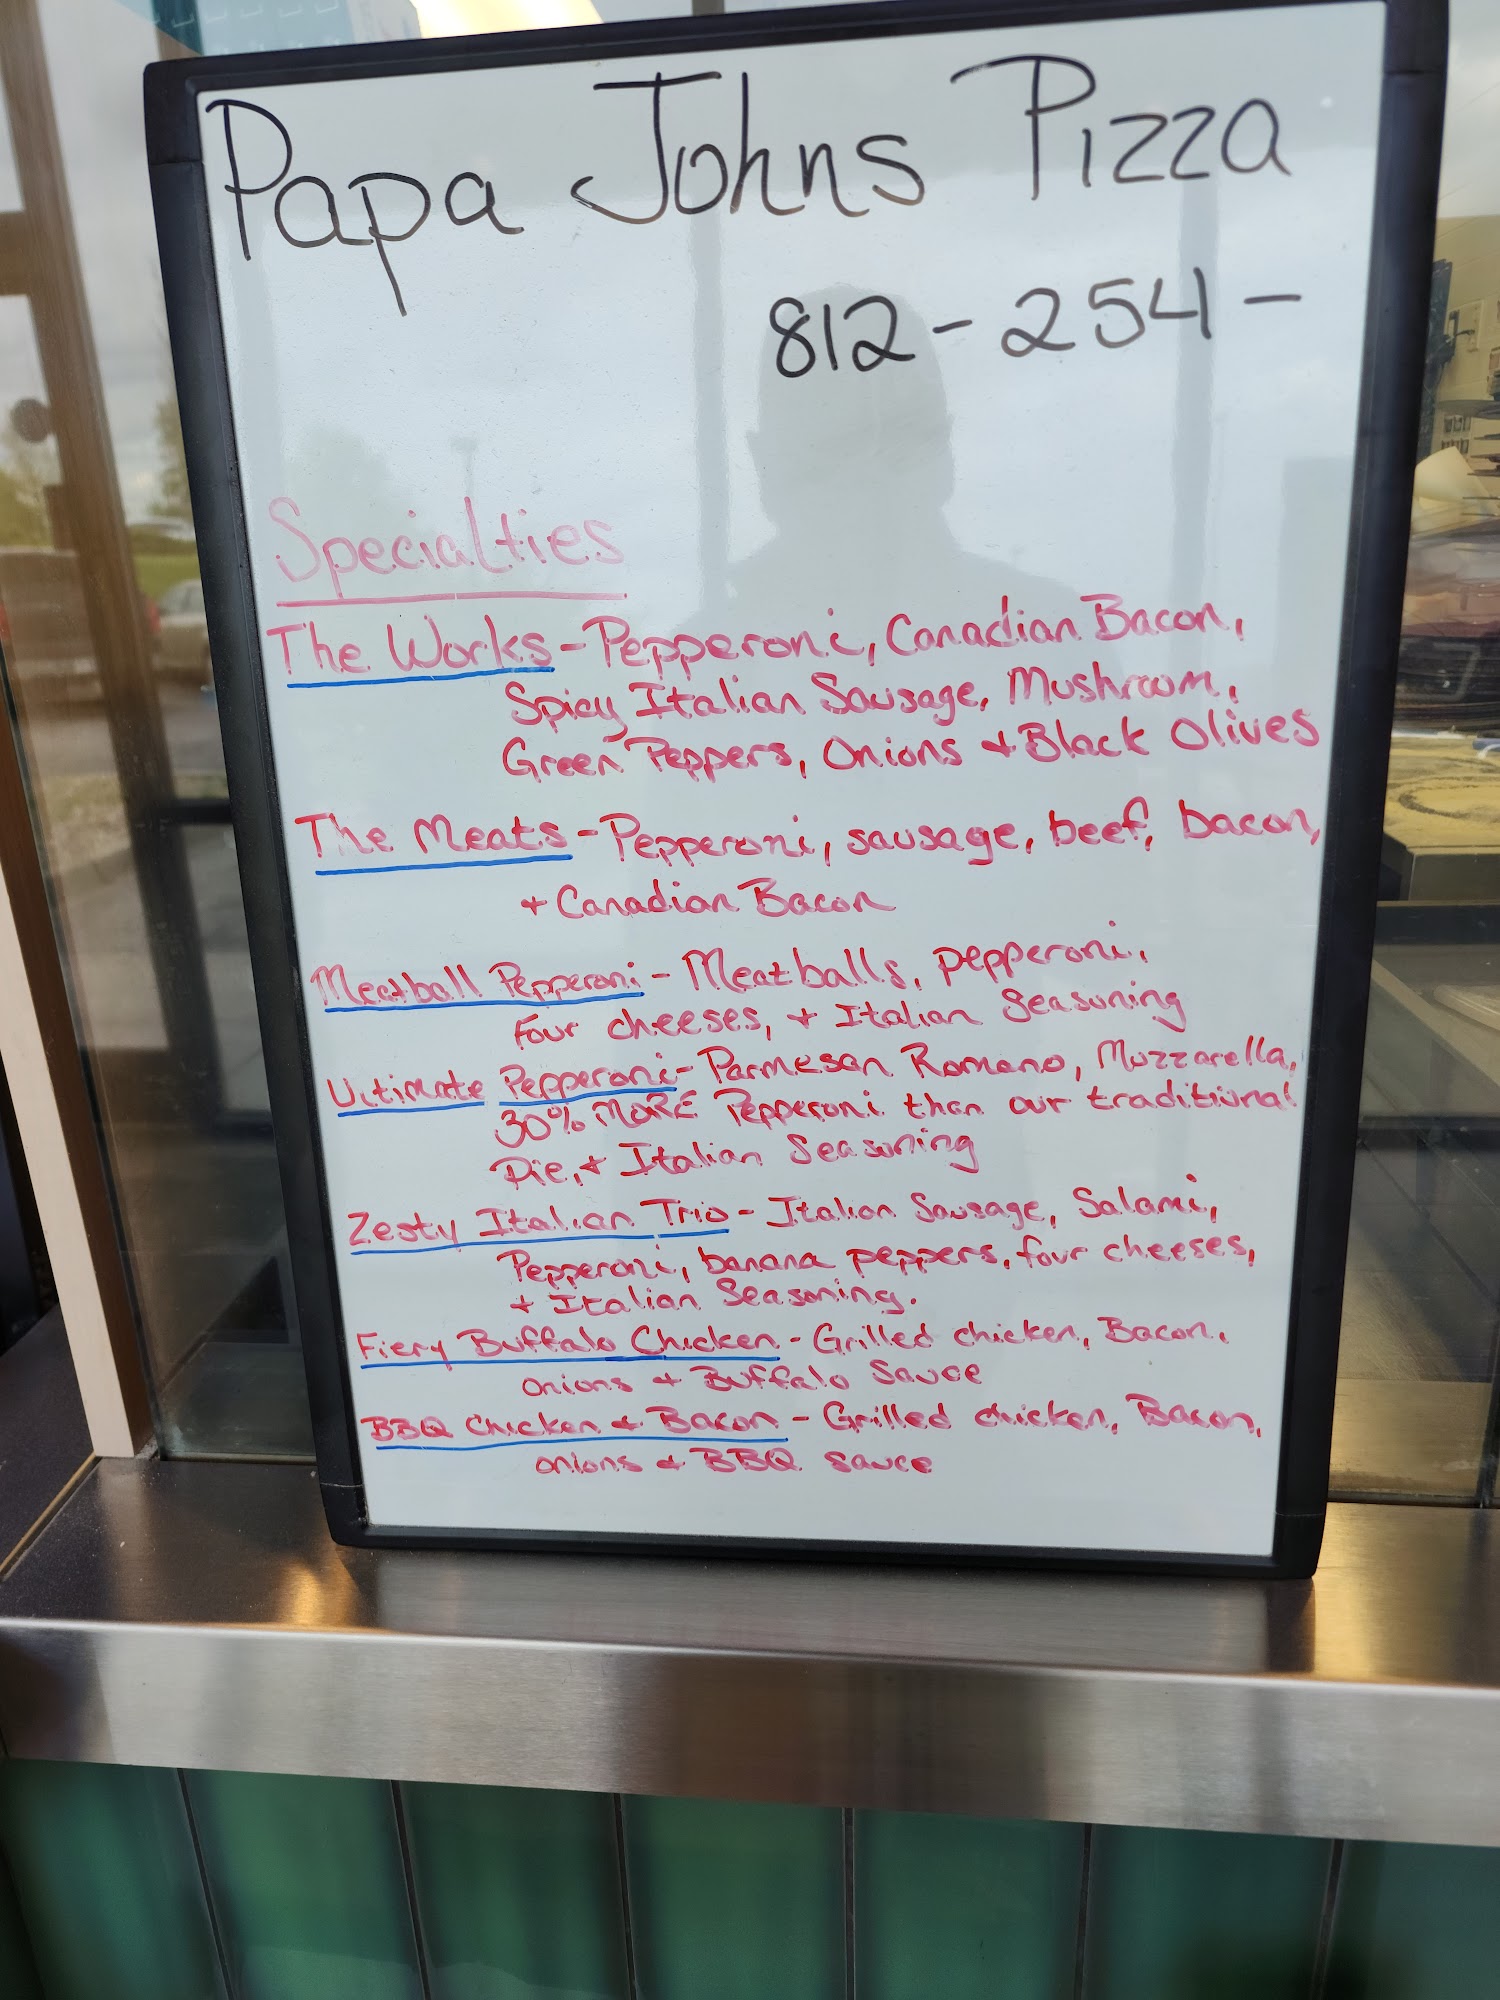 Papa Johns Pizza
812-254-
Specialties
The Works - Pepperoni, Canadian Bacon,
Spicy Italian Sausage, Mushroom,
Green Peppers, Onions + Black Olives
The Meats - Pepperoni, sausage, beef, bacon,
+ Canadian Bacon
Meatball Pepperoni - Meatballs, pepperoni,
four cheeses, + Italian Seasoning
Ultimate Pepperoni - Parmesan Romano, Mozzarella,
30% MORE Pepperoni than our traditional
Pie, + Italian Seasoning
Zesty Italian Trio - Italian Sausage, Salami,
Pepperoni, banana peppers, four cheeses,
+ Italian Seasoning.
Fiery Buffalo Chicken - Grilled chicken, Bacon,
onions + Buffalo Sauce
BBQ Chicken & Bacon - Grilled chicken, Bacon,
onions & BBQ sauce